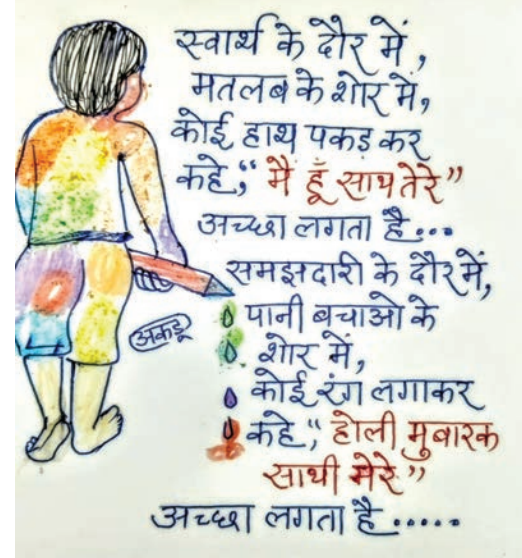 स्वार्थ के दौर में,
मतलब के शोर में,
कोई हाथ पकड़ कर
कहे, "मैं हूँ साथ तेरे"
अच्छा लगता है...
समझदारी के दौर में,
पानी बचाओ के
शोर में,
कोई रंग लगाकर
कहे, "होली मुबारक
साथी मेरे"
अच्छा लगता है.....
अकडू